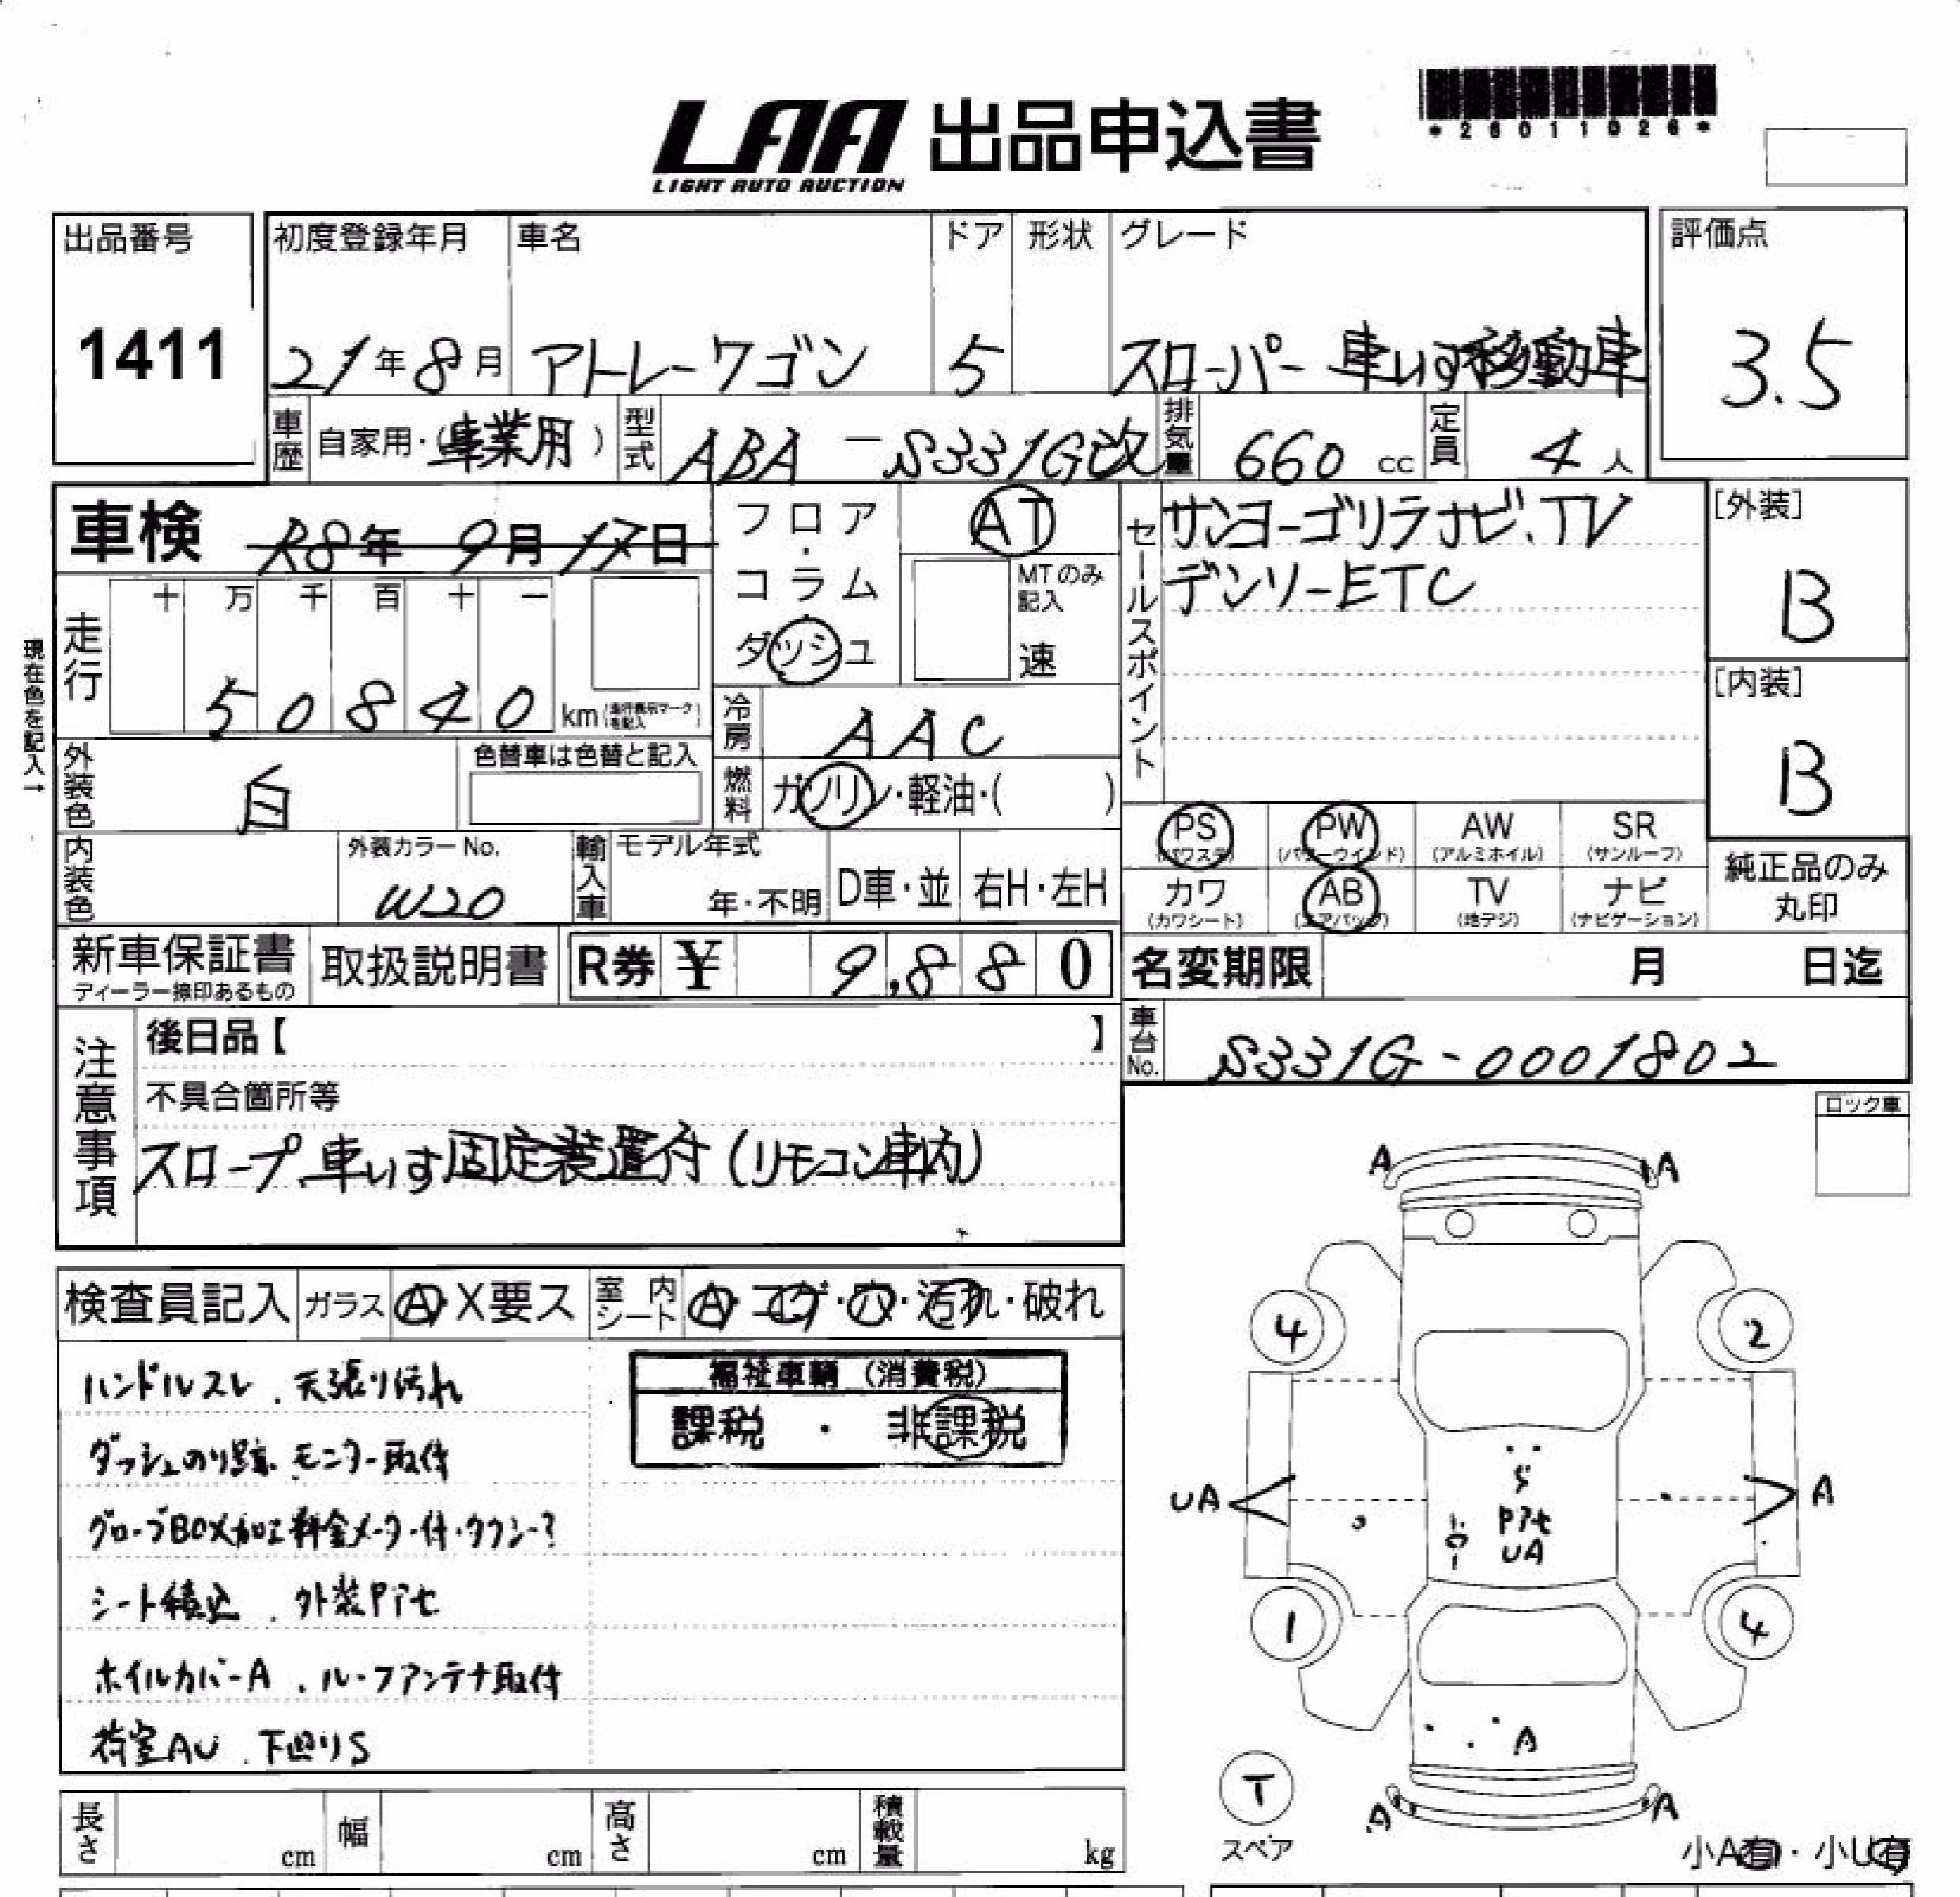 LAA 出品申込書
LIGHT AUTO AUCTION
*26011026*
出品番号
1411
初度登録年月 車名 ドア 形状 グレード
21年8月 アトレーワゴン 5 スローパー 車いす移動車
評価点
3.5
車歴 自家用・(事業用) 型式 ABA-S331G改 排気量 660 cc 定員 4人
車検 R8年9月17日
フロア・コラム・ダッシュ
AT
MTのみ記入
速
セールスポイント
サンヨーゴリラナビ、TV
デンソーETC
[外装]
B
[内装]
B
現在色を記入→
走行
十 万 千 百 十 一
50840 km(走行表示マークを記入)
冷房 AAC
外装色 白
色替車は色替と記入
燃料 ガソリン・軽油・( )
内装色
外装カラーNo.
W20
輸入車 モデル年式
年・不明
D車・並 右H・左H
PS (パワステ)
PW (パワーウインド)
AW (アルミホイル)
SR (サンルーフ)
カワ (カワシート)
AB (エアバッグ)
TV (地デジ)
ナビ (ナビゲーション)
純正品のみ丸印
新車保証書
ディーラー捺印あるもの
取扱説明書
R券 ¥ 9,880
名変期限 月 日迄
車台No. S331G-0001802
注意事項
後日品【 】
不具合箇所等
スロープ、車いす固定装置付(リモコン車内)
ロック車
検査員記入 ガラス A・X要ス 室内シート A・コゲ・穴・汚れ・破れ
ハンドルスレ、天張り汚れ
ダッシュのり跡、モニター取付
グローブBOX加工 料金メーター付・タクシー?
シート積込、外装Pアセ
ホイルカバーA、ルーフアンテナ取付
荷室AU、下廻りS
福祉車輌(消費税)
課税・非課税
A A
4 2
UA A
S
Pアセ
UA
1 4
A
T
スペア
A A
小A有・小U有
長さ cm 幅 cm 高さ cm 積載量 kg